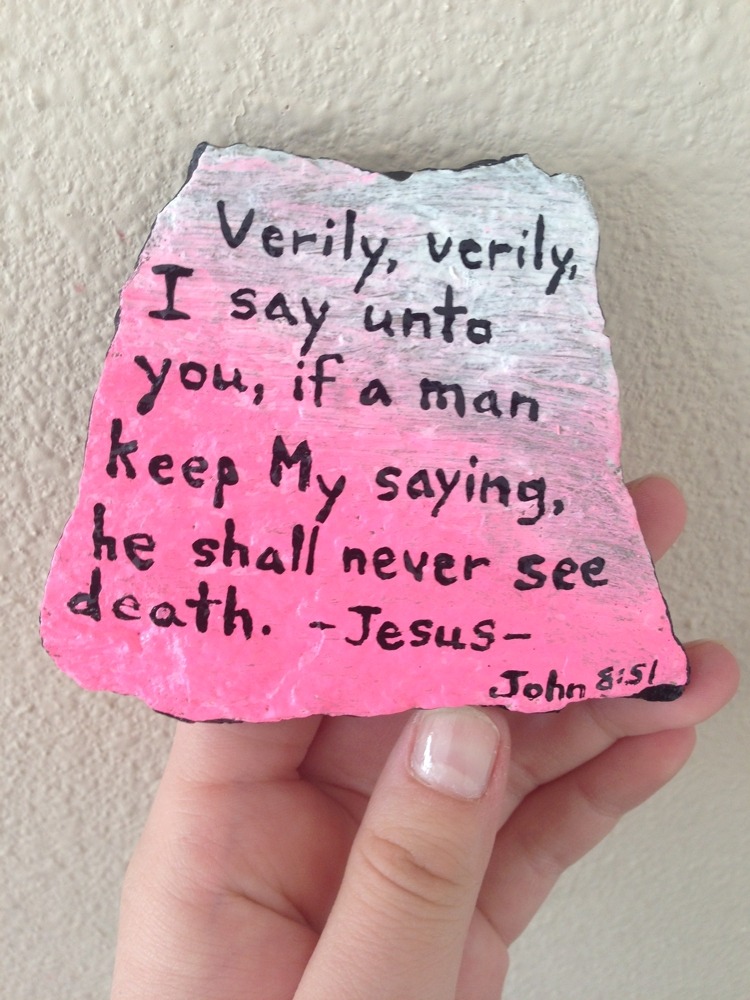 Verily, verily,
I say unto
you, if a man
keep My saying,
he shall never see
death. -Jesus-
John 8:51